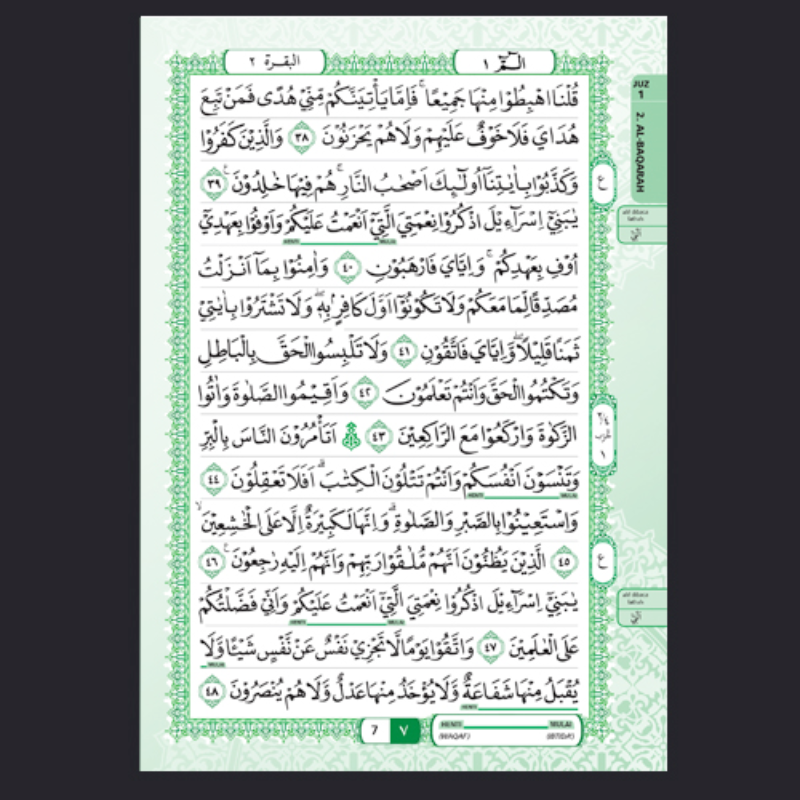 البقرة ٢
الۤمّۤ ١
JUZ
١
2. AL-BAQARAH
قُلْنَا اهْبِطُوْا مِنْهَا جَمِيْعًا ۚ فَاِمَّا يَأْتِيَنَّكُمْ مِّنِّيْ هُدًى فَمَنْ تَبِعَ
هُدَايَ فَلَا خَوْفٌ عَلَيْهِمْ وَلَا هُمْ يَحْزَنُوْنَ ٣٨ وَالَّذِيْنَ كَفَرُوْا
وَكَذَّبُوْا بِاٰيٰتِنَآ اُولٰۤىِٕكَ اَصْحٰبُ النَّارِ ۚ هُمْ فِيْهَا خٰلِدُوْنَ ࣖ ٣٩
يٰبَنِيْٓ اِسْرَاۤءِيْلَ اذْكُرُوْا نِعْمَتِيَ الَّتِيْٓ اَنْعَمْتُ عَلَيْكُمْ وَاَوْفُوْا بِعَهْدِيْٓ
HENTI MULAI
اُوْفِ بِعَهْدِكُمْۚ وَاِيَّايَ فَارْهَبُوْنِ ٤٠ وَاٰمِنُوْا بِمَآ اَنْزَلْتُ
مُصَدِّقًا لِّمَا مَعَكُمْ وَلَا تَكُوْنُوْٓا اَوَّلَ كَافِرٍۢ بِهٖ ۖ وَلَا تَشْتَرُوْا بِاٰيٰتِيْ
ثَمَنًا قَلِيْلًا ۖوَّاِيَّايَ فَاتَّقُوْنِ ٤١ وَلَا تَلْبِسُوا الْحَقَّ بِالْبَاطِلِ
وَتَكْتُمُوا الْحَقَّ وَاَنْتُمْ تَعْلَمُوْنَ ٤٢ وَاَقِيْمُوا الصَّلٰوةَ وَاٰتُوا
الزَّكٰوةَ وَارْكَعُوْا مَعَ الرَّاكِعِيْنَ ٤٣ ۞ اَتَأْمُرُوْنَ النَّاسَ بِالْبِرِّ
وَتَنْسَوْنَ اَنْفُسَكُمْ وَاَنْتُمْ تَتْلُوْنَ الْكِتٰبَ ۗ اَفَلَا تَعْقِلُوْنَ ٤٤
HENTI MULAI
وَاسْتَعِيْنُوْا بِالصَّبْرِ وَالصَّلٰوةِ ۗ وَاِنَّهَا لَكَبِيْرَةٌ اِلَّا عَلَى الْخٰشِعِيْنَۙ
٤٥ الَّذِيْنَ يَظُنُّوْنَ اَنَّهُمْ مُّلٰقُوْا رَبِّهِمْ وَاَنَّهُمْ اِلَيْهِ رٰجِعُوْنَ ࣖ ٤٦
يٰبَنِيْٓ اِسْرَاۤءِيْلَ اذْكُرُوْا نِعْمَتِيَ الَّتِيْٓ اَنْعَمْتُ عَلَيْكُمْ وَاَنِّيْ فَضَّلْتُكُمْ
HENTI MULAI
عَلَى الْعٰلَمِيْنَ ٤٧ وَاتَّقُوْا يَوْمًا لَّا تَجْزِيْ نَفْسٌ عَنْ نَّفْسٍ شَيْـًٔا وَّلَا
MULAI
يُقْبَلُ مِنْهَا شَفَاعَةٌ وَّلَا يُؤْخَذُ مِنْهَا عَدْلٌ وَّلَا هُمْ يُنْصَرُوْنَ ٤٨
HENTI
ع
ع
7 ٧
HENTI MULAI
(WAQAF) (IBTIDA')